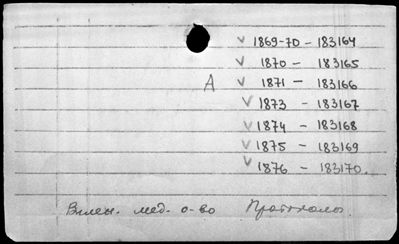 ✓ 1869-70 - 183164
✓ 1870 - 183165
А ✓ 1871 - 183166
✓ 1873 - 183167
✓ 1874 - 183168
✓ 1875 - 183169
✓ 1876 - 183170.
Вилен. мед. о-во Протоколы.